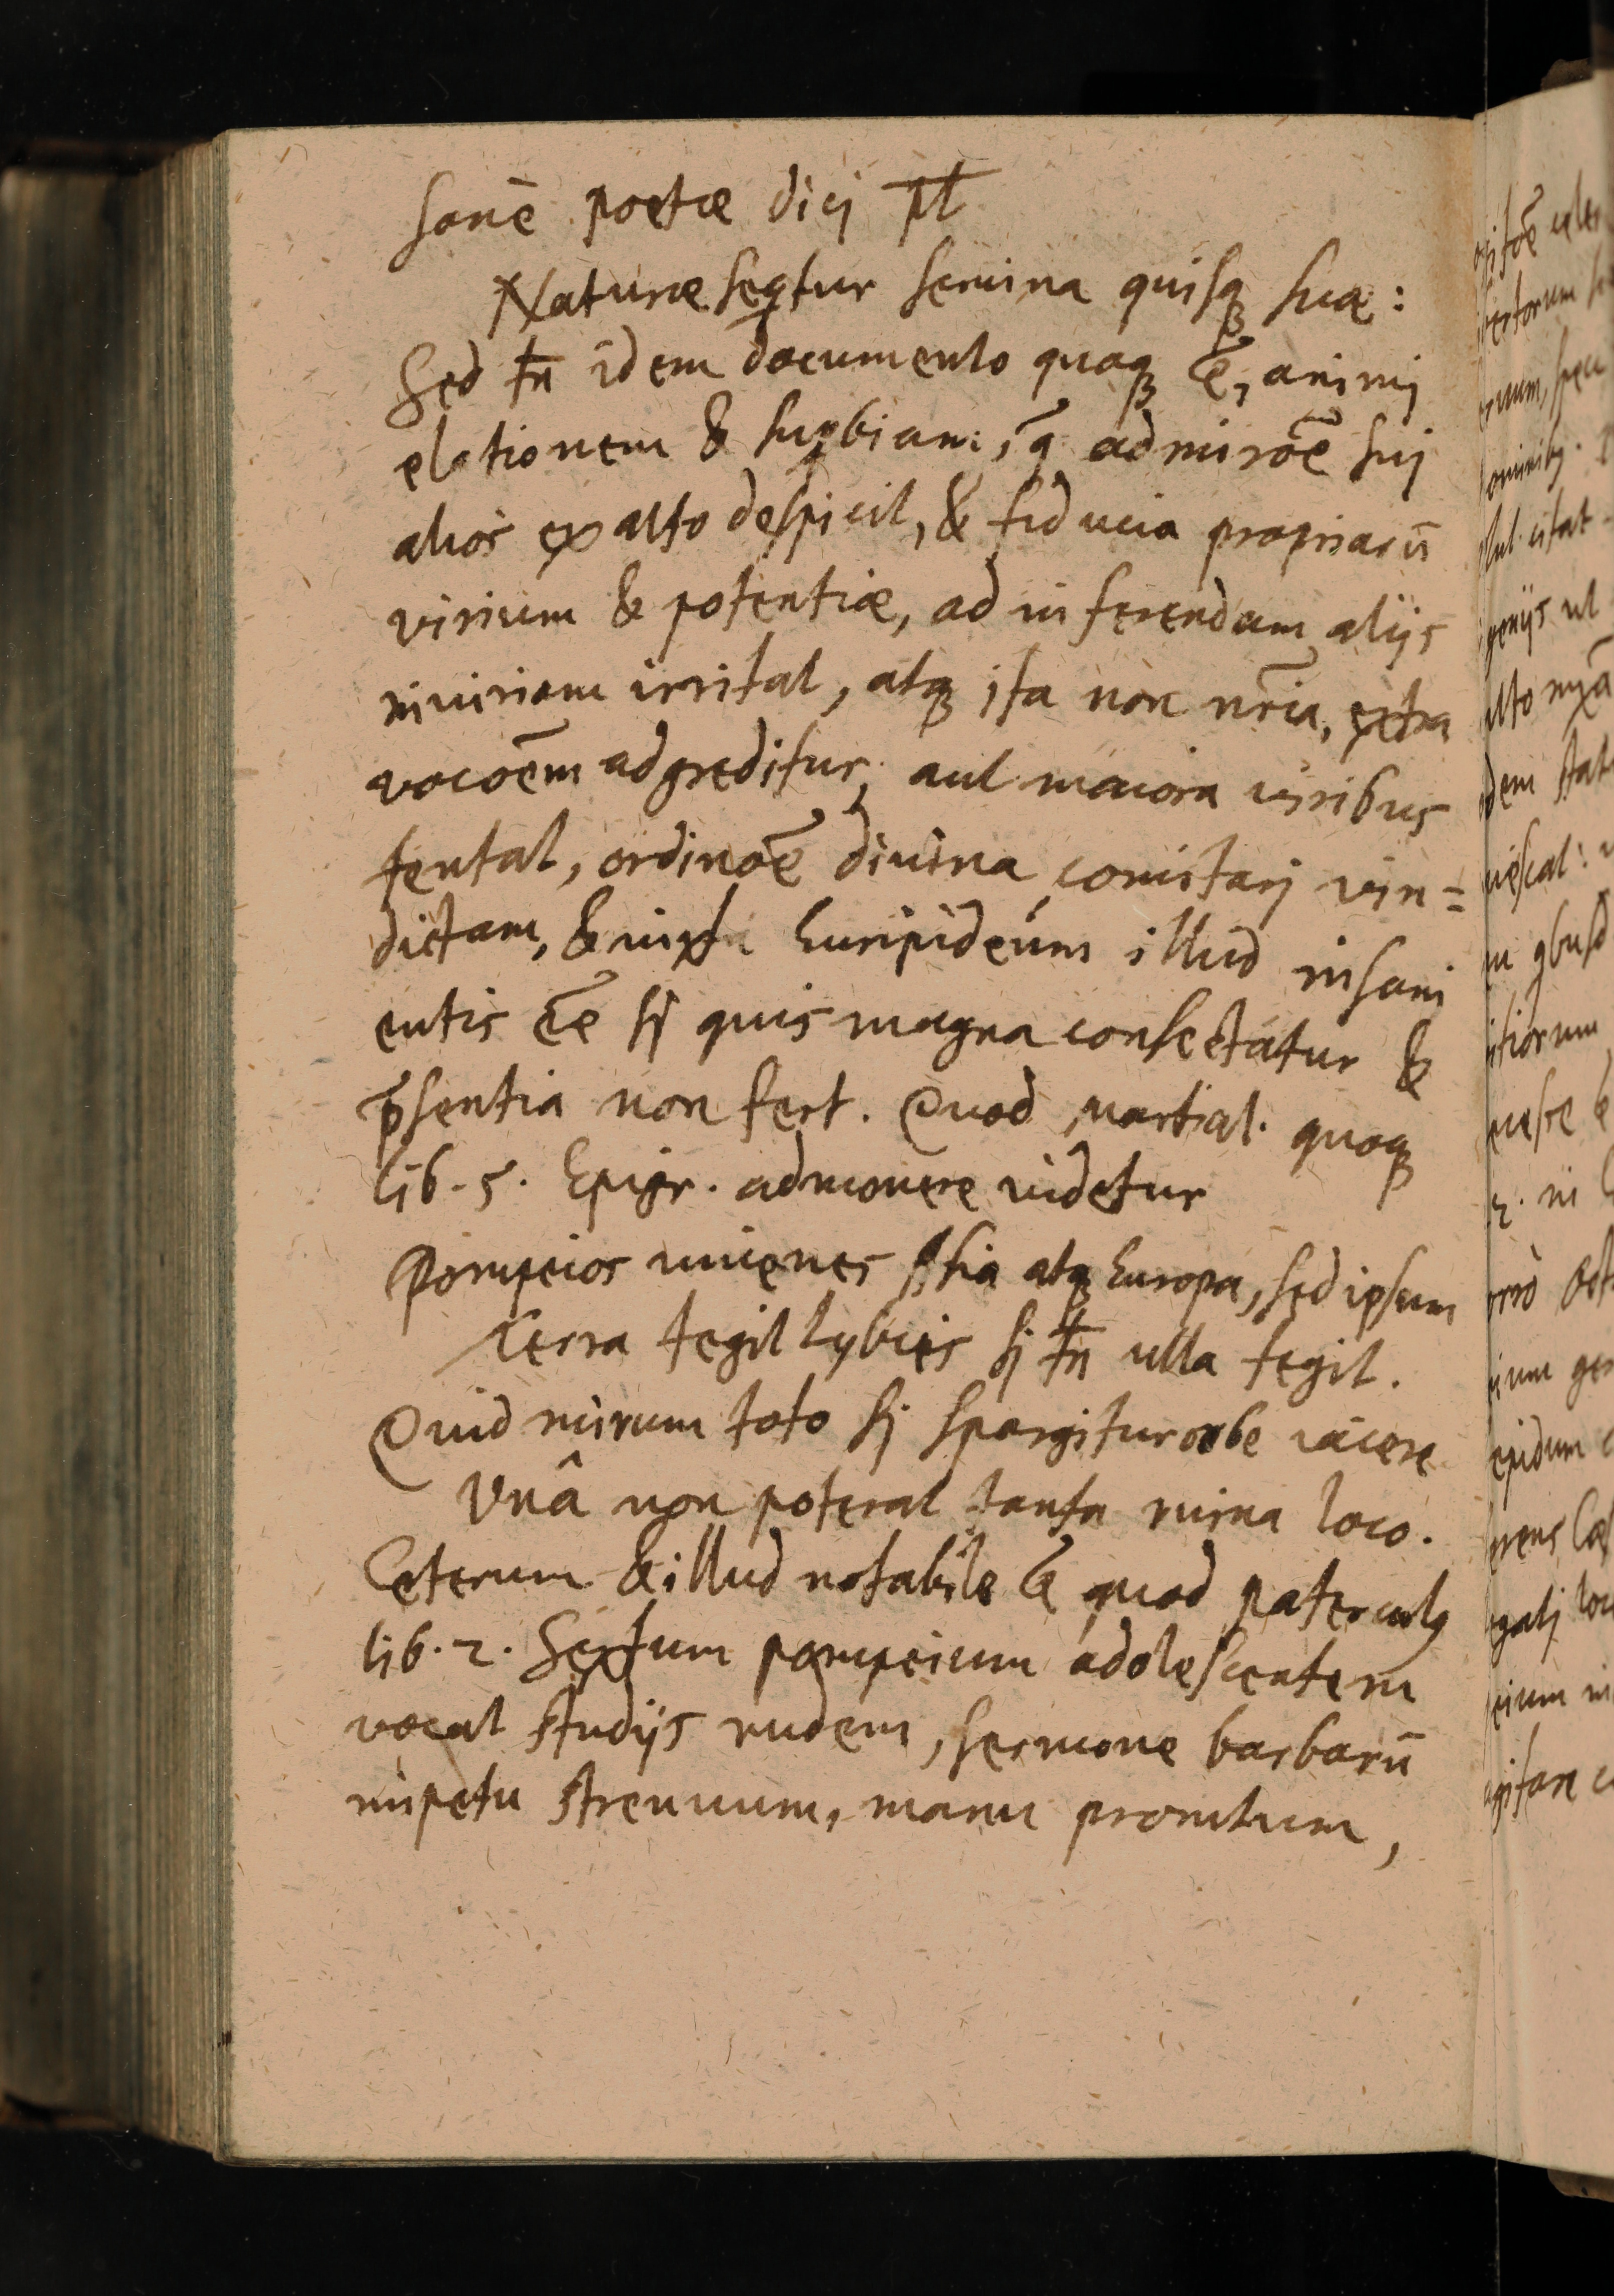 sanè poetae dicj p̅t̅
Naturae seq̅tur semina quisq; suae:
Sed tn̄ idem documento quoq; ē, animj
elationem & suꝑbiam, q̄ admiraōe suj
alios ex alto despicit, & fiducia propriarū
virium & potentiae, ad inferendam alijs
iniuriam irritat, atq; ita non nr̄ia, extra
vocaōem adgreditur, aut maiora viribus
tentat, ordinaōe diuina comitarj vin=
dictam, & iuxta Euripideúm illud insani
entis ēe sj quis magna consectatur &
p̄sentia non fert. Quod Martial. quoq;
lib. 5. Epigr. admonere videtur
Pompeios iuuenes Asia atq; Europa, sed ipsum
Terra tegit Lybies sj tn̄ ulla tegit.
Quid mirum toto sj spargitur orbe iacere
Vnâ non poterat tanta ruina loco.
Ceterum & illud notabile ē quod paterculꝰ
lib. 2. Sextum pompeium adolescentem
vocat studijs rudem, sermone barbarū
impetu strenuum, manu promtum,